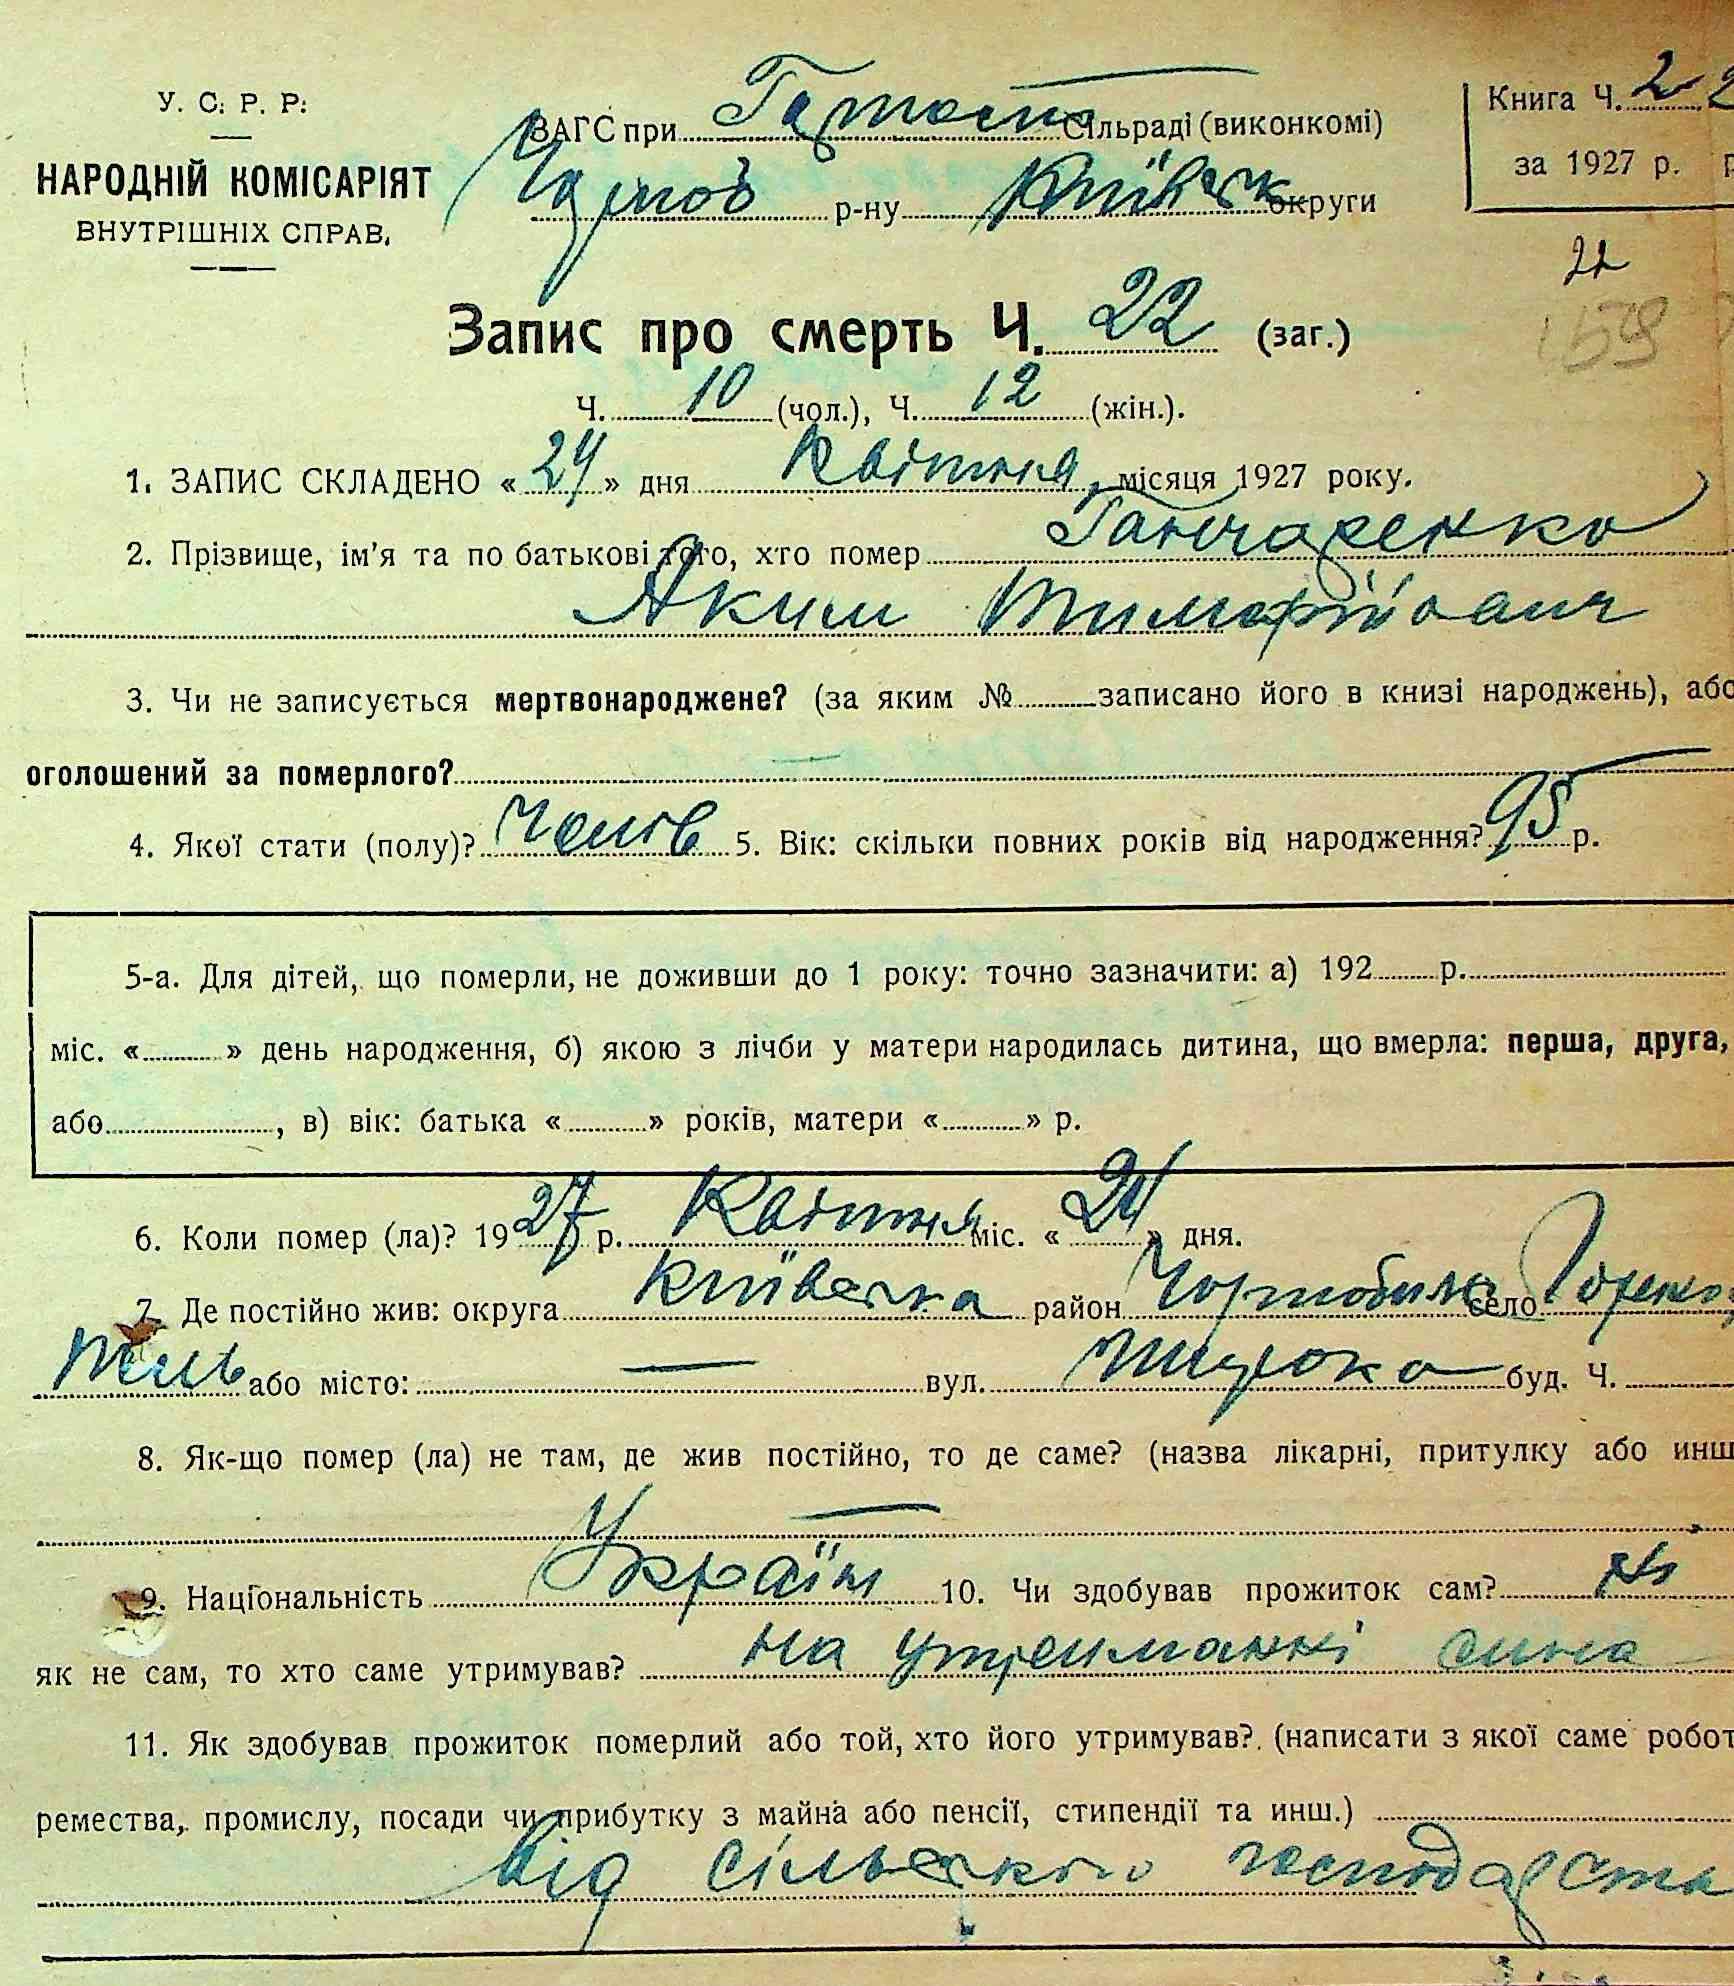 У. С. Р. Р.
НАРОДНІЙ КОМІСАРІЯТ
ВНУТРІШНІХ СПРАВ.
ЗАГС при Сільраді (виконкомі)
р-ну Київськ округи
Книга Ч. 2
за 1927 р.
22
159
Запис про смерть Ч. 22 (заг.)
Ч. 10 (чол.), Ч. 12 (жін.).
1. ЗАПИС СКЛАДЕНО « 24 » дня Квітня місяця 1927 року.
2. Прізвище, ім'я та по батькові того, хто помер Гончаренко
Яким Тимофійович
3. Чи не записується мертвонароджене? (за яким № записано його в книзі народжень), або
оголошений за померлого? —
4. Якої стати (полу)? Чолов 5. Вік: скільки повних років від народження? 95 р.
5-а. Для дітей, що померли, не доживши до 1 року: точно зазначити: а) 192 р.
міс. « » день народження, б) якою з лічби у матери народилась дитина, що вмерла: перша, друга,
або , в) вік: батька « » років, матери « » р.
6. Коли помер (ла)? 1927 р. Квітня міс. « 24 » дня.
7. Де постійно жив: округа Київська район Чорнобиль село
або місто: — вул. Широка буд. Ч.
8. Як-що помер (ла) не там, де жив постійно, то де саме? (назва лікарні, притулку або инш
—
9. Національність Україн 10. Чи здобував прожиток сам? Ні
як не сам, то хто саме утримував? На утриманні сина
11. Як здобував прожиток померлий або той, хто його утримував? (написати з якої саме робот
ремества, промислу, посади чи прибутку з майна або пенсії, стипендії та инш.)
від сільського господарств